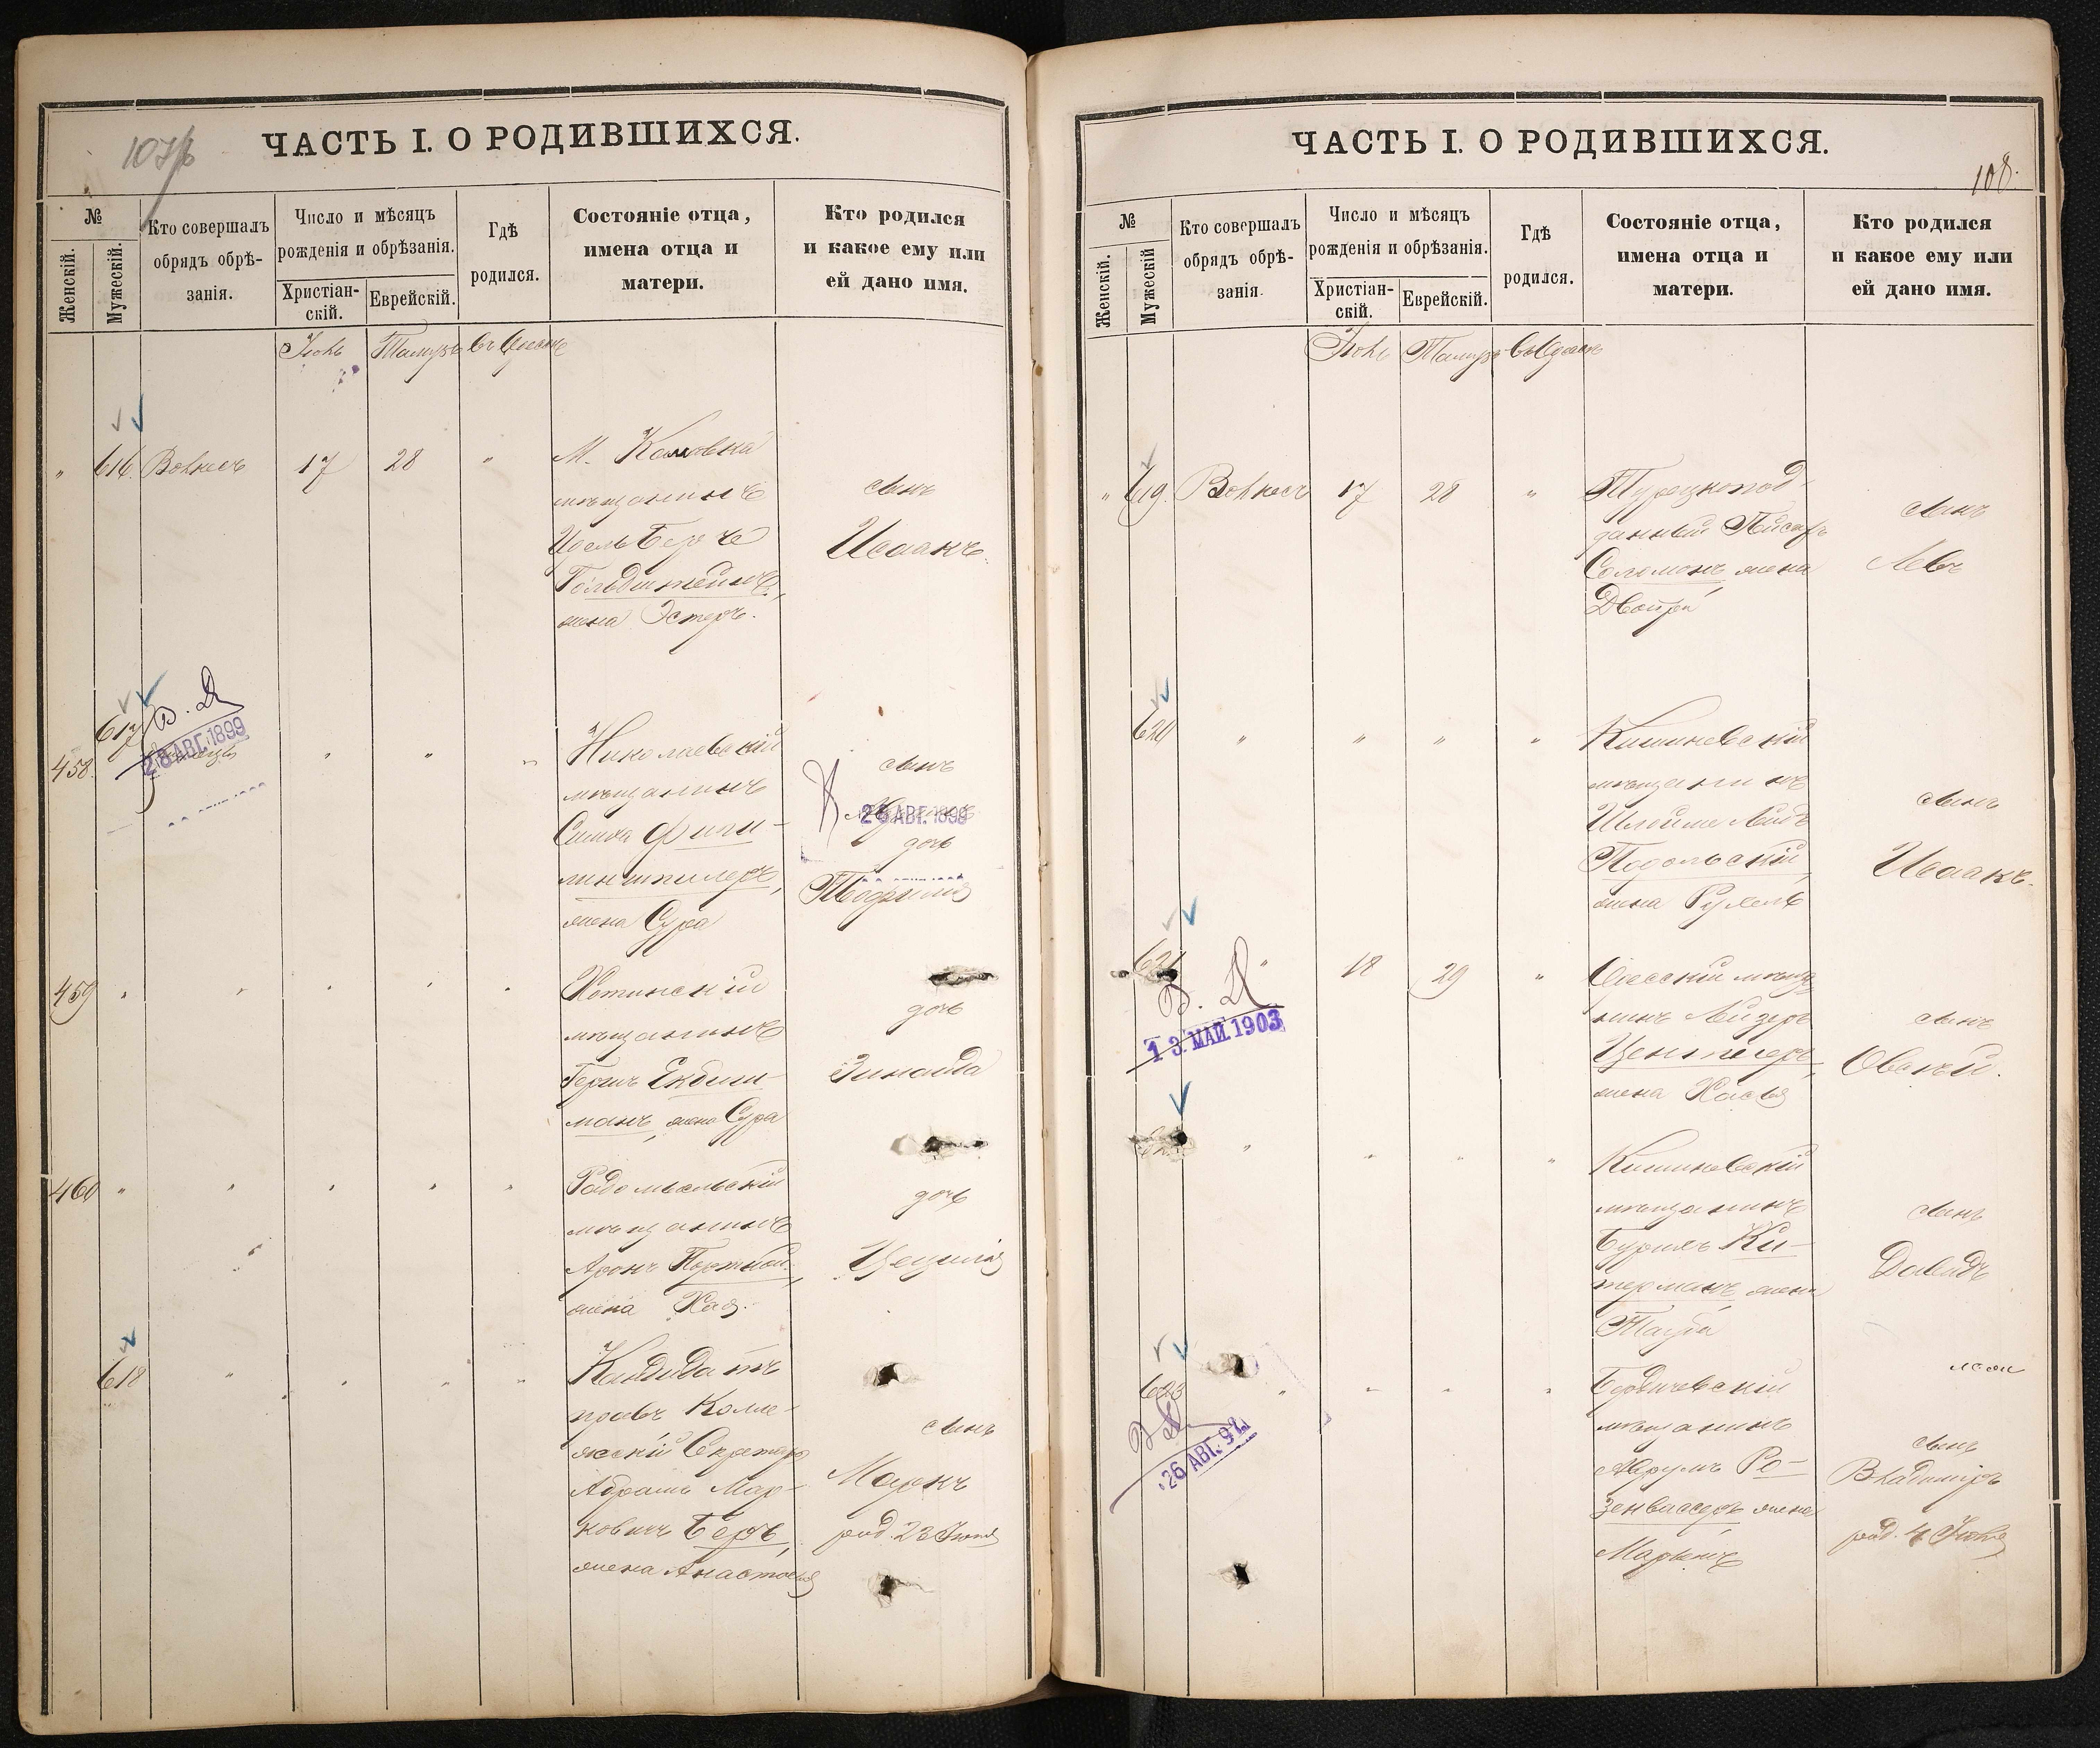 107 об
ЧАСТЬ I. О РОДИВШИХСЯ.
№
Женскій.
Мужескій.
Кто совершалъ
обрядъ обрѣ-
занія.
Число и мѣсяцъ
рожденія и обрѣзанія.
Христіан-
скій.
Еврейскій.
Гдѣ
родился.
Состояніе отца,
имена отца и
матери.
Кто родился
и какое ему или
ей дано имя.
Іюль Тамузъ въ Одессѣ
" 616. 17 28 "
М.
мѣщанинъ
Идель Беръ
Гольдштейнъ,
жена Эстеръ.
сынъ
Исаакъ.
458. 617
В. Д
28 АВГ. 1899
Николаевскій
мѣщанинъ
Симха Фили-
жена Сура
сынъ
28 АВГ. 1899
дочь
459 " " " " "
Хотинскій
мѣщанинъ
Гершъ
манъ, жена Сура
дочь
Зинаида
460 " " " " "
Радомысльскій
мѣщанинъ
Аронъ Портной,
жена Хая.
дочь
Цецилія
618 " " " "
Кандидатъ
правъ Колле-
жскій Секретарь
Абрамъ Мар-
ковичъ Беръ,
жена Анастасія
сынъ
Маркъ
род. 23 Іюня
ЧАСТЬ I. О РОДИВШИХСЯ.
108.
№
Женскій.
Мужескій
Кто совершалъ
обрядъ обрѣ-
занія.
Число и мѣсяцъ
рожденія и обрѣзанія.
Христіан-
скій.
Еврейскій.
Гдѣ
родился.
Состояніе отца,
имена отца и
матери.
Кто родился
и какое ему или
ей дано имя.
Іюль Тамузъ въ Одессѣ
" 619. 17 28 "
Турецкопод-
данный
Соломонъ, жена
Двойра
сынъ
Левъ
620 " " " "
Кишиневскій
мѣщанинъ
Шлойме Лейбъ
Подольскій,
жена Рухель
сынъ
Исаакъ.
621 " 18 29 "
В. Д
13 МАЙ 1903
Одесскій мѣща
нинъ Лейзеръ
жена Хася
сынъ
Овсѣй.
" " " "
Кишиневскій
мѣщанинъ
Ки-
терманъ, жена
Тауба
сынъ
Давидъ
623 " " " "
В Д
26 АВГ. 92
Бердичевскій
мѣщанинъ
Аврумъ Ро-
зенвассеръ, жена
сынъ
Владиміръ
род. 4 Іюля